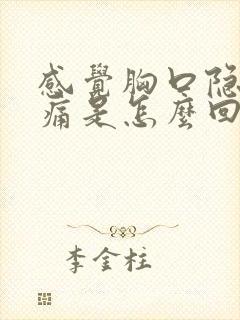 感覺胸口隐
痛是怎麼回
李金柱